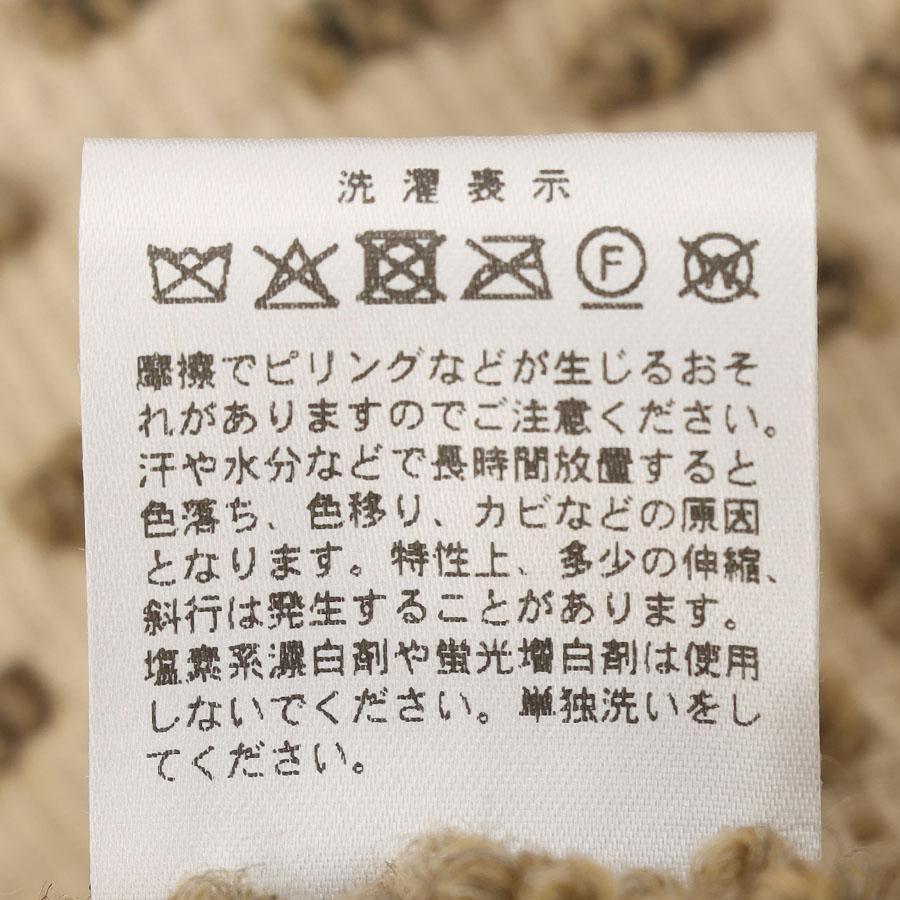 洗濯表示
F
W
摩擦でピリングなどが生じるおそ
れがありますのでご注意ください。
汗や水分などで長時間放置すると
色落ち、色移り、カビなどの原因
となります。特性上、多少の伸縮、
斜行は発生することがあります。
塩素系漂白剤や蛍光増白剤は使用
しないでください。単独洗いをし
てください。